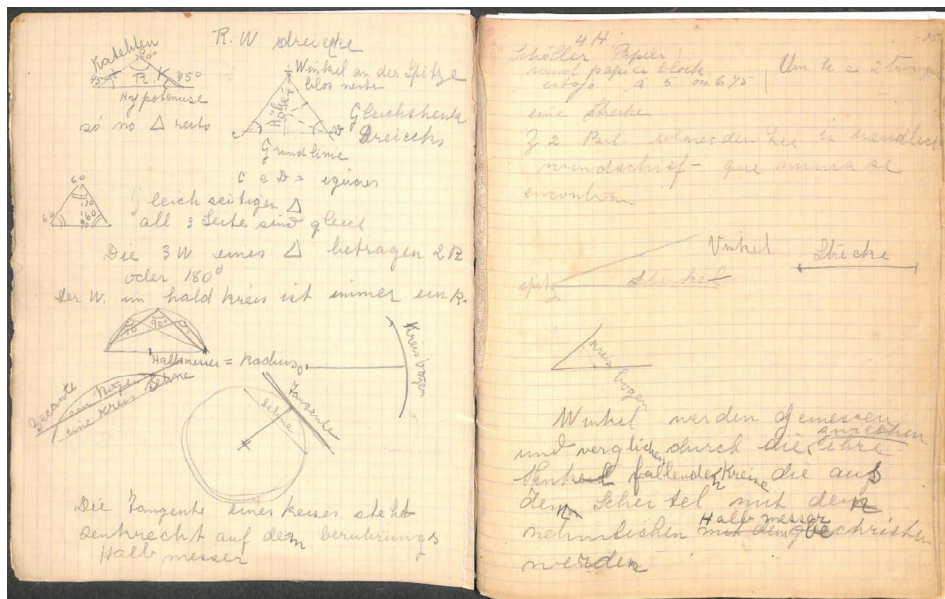 R. W dreiecke
Katehten
90°
R.
45°
Hypotenuse
só no △ reito
Winkel an der Spitze
blos
Höhe
Gleichshenk
Dreiecks
Grundlinie
C e D = iguaes
60
60
60
Gleich seitigen △
all 3 Seite sind gleich
Die 3 W eines △ betragen 2R
oder 180°
Der W. um haldkreis ist immer ein R.
90°
Halbmesser = Radius
Kreisbogen
Secante
ein Bogen
eine Kreis Sehne
Sehne
Tangente
Die Tangente eines keises steht
senkrecht auf dem beruhrungs
Halbmesser
4 H
Schöller Papier
papier block
estojo a 5 ou 6 75
Um te e 2
eine Strecke
z 2 Parl.
windschief - que nunca se
encontram
Vinkel
Strecke
spitz
Kreis bogen
Winkel werden gemessen
und verglichen durch die zwischen ihre
Shenkel fallenden Kreise die aus
dem Scheitel mit dem
nehmlichen Halb messer beschrieben
werden